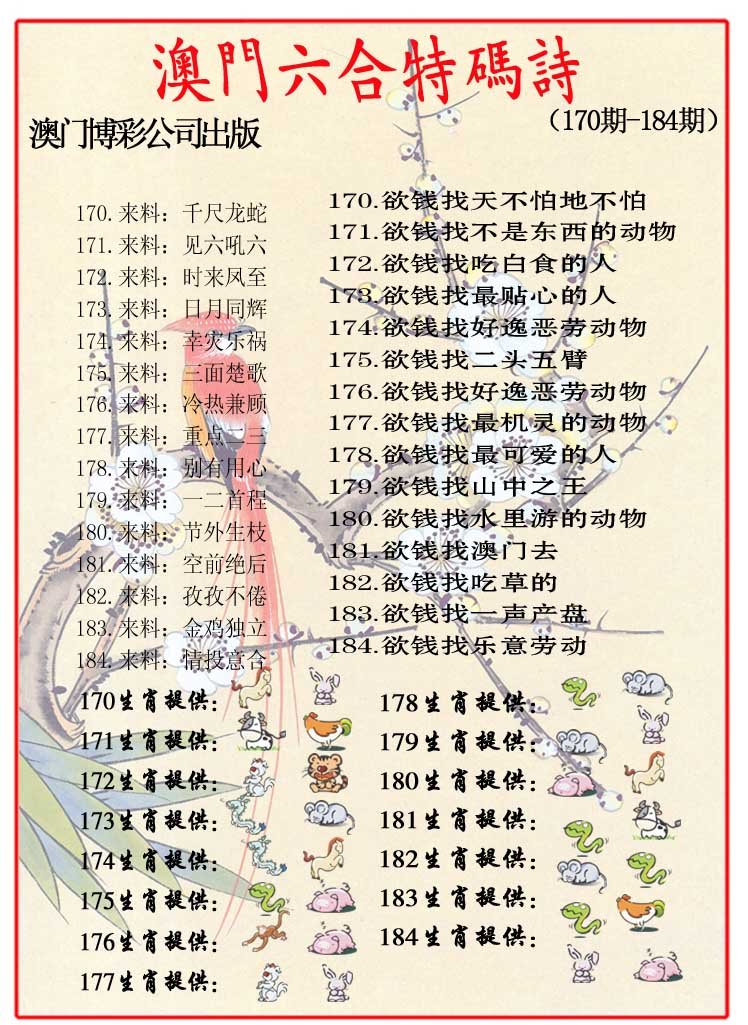 澳門六合特碼詩
澳门博彩公司出版
（170期-184期）
170.来料：千尺龙蛇
171.来料：见六吼六
172.来料：时来凤至
173.来料：日月同辉
174.来料：幸灾乐祸
175.来料：三面楚歌
176.来料：冷热兼顾
177.来料：重点二三
178.来料：别有用心
179.来料：一二首程
180.来料：节外生枝
181.来料：空前绝后
182.来料：孜孜不倦
183.来料：金鸡独立
184.来料：情投意合
170.欲钱找天不怕地不怕
171.欲钱找不是东西的动物
172.欲钱找吃白食的人
173.欲钱找最贴心的人
174.欲钱找好逸恶劳动物
175.欲钱找二头五臂
176.欲钱找好逸恶劳动物
177.欲钱找最机灵的动物
178.欲钱找最可爱的人
179.欲钱找山中之王
180.欲钱找水里游的动物
181.欲钱找澳门去
182.欲钱找吃草的
183.欲钱找一声产盘
184.欲钱找乐意劳动
170生肖提供：
171生肖提供：
172生肖提供：
173生肖提供：
174生肖提供：
175生肖提供：
176生肖提供：
177生肖提供：
178生肖提供：
179生肖提供：
180生肖提供：
181生肖提供：
182生肖提供：
183生肖提供：
184生肖提供：